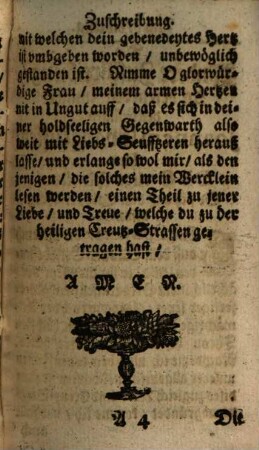 Zuschreibung.
mit welchen dein gebenedeytes Hertz
ist vmbgeben worden / unbewöglich
gestanden ist. Nimme O glorwür-
dige Frau / meinem armen Hertzen
nit in Ungut auff / daß es sich in dei-
ner holdseeligen Gegenwarth also
weit mit Liebs-Seufftzeren herauß
lasse / und erlange so wol mir / als den
jenigen / die solches mein Wercklein
lesen werden / einen Theil zu jener
Liebe / und Treue / welche du zu der
heiligen Creutz-Strassen ge-
tragen hast /
AMEN.
A 4 Die